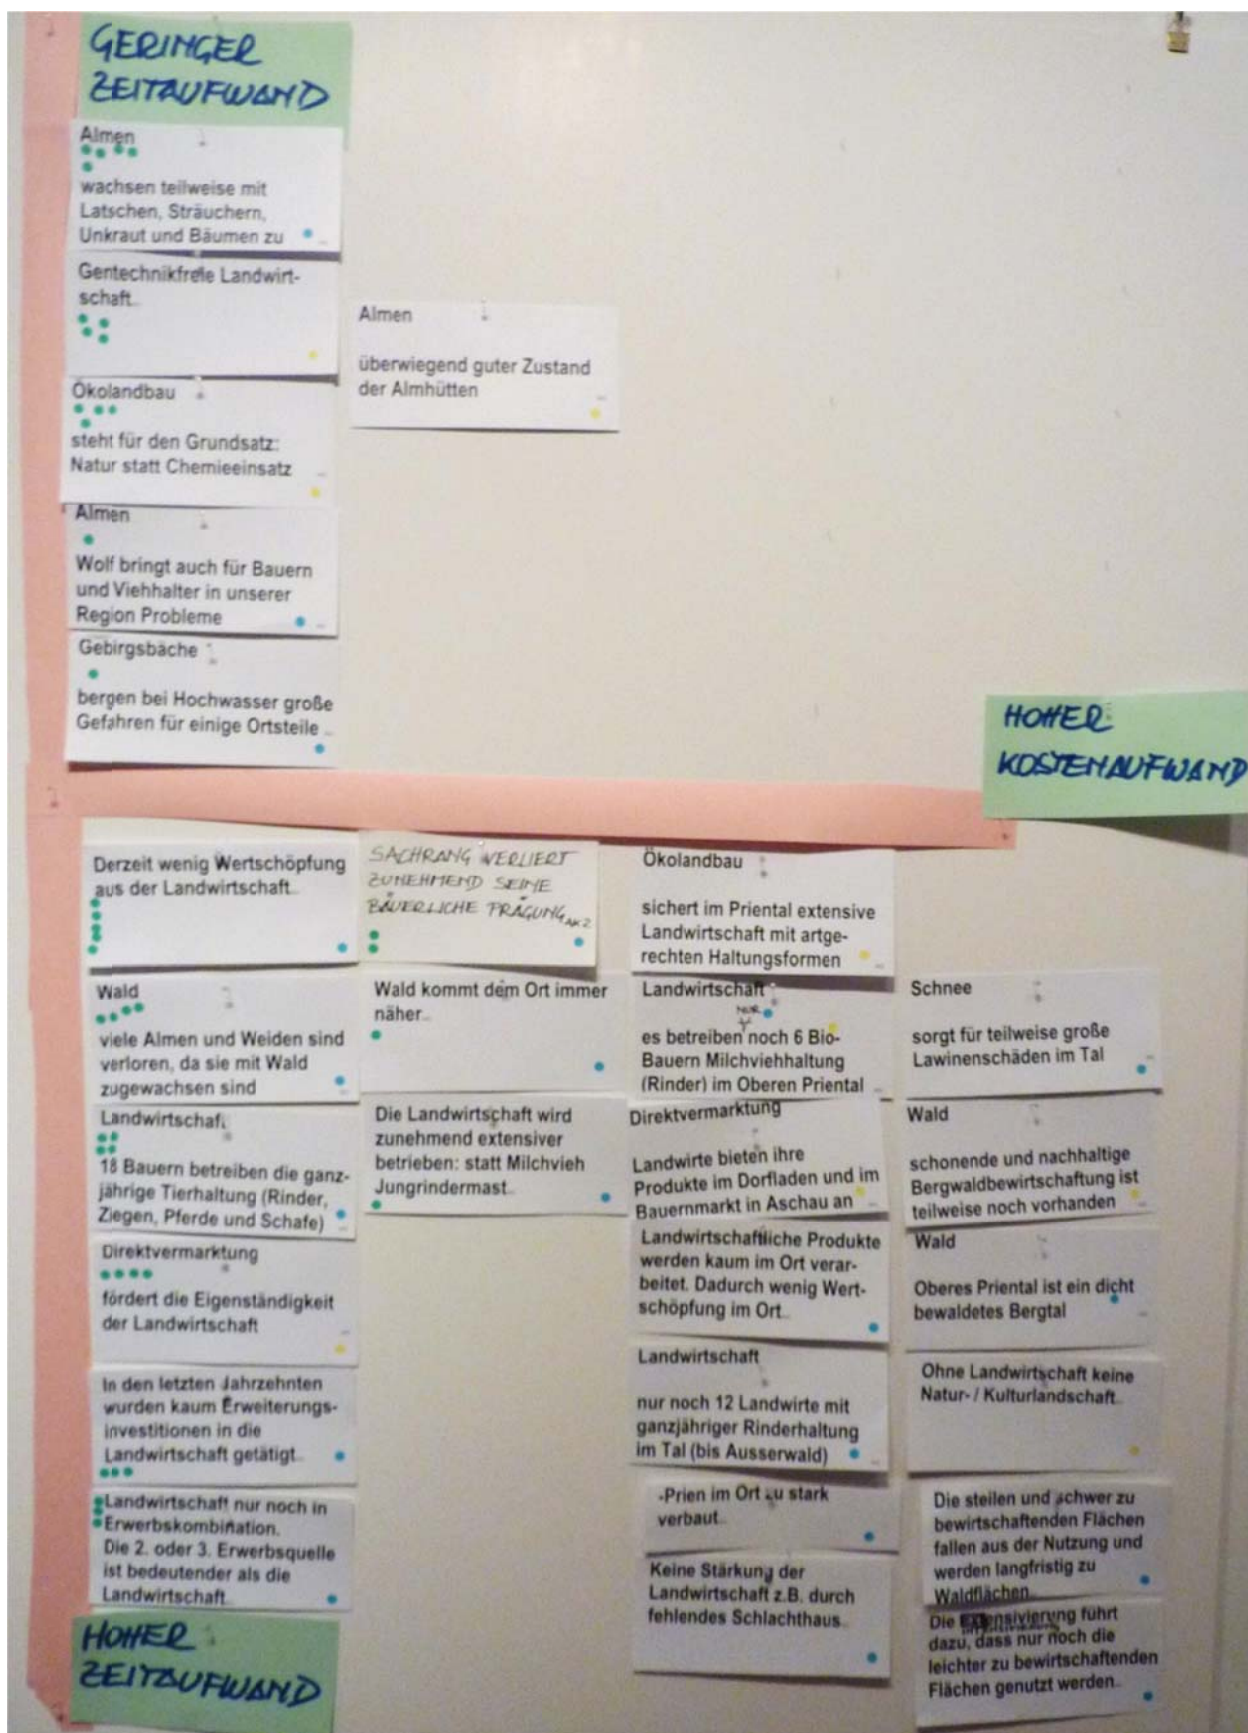 GERINGER
ZEITAUFWAND
Almen
wachsen teilweise mit
Latschen, Sträuchern,
Unkraut und Bäumen zu
Gentechnikfreie Landwirt-
schaft
Ökolandbau
steht für den Grundsatz:
Natur statt Chemieeinsatz
Almen
Wolf bringt auch für Bauern
und Viehhalter in unserer
Region Probleme
Gebirgsbäche
bergen bei Hochwasser große
Gefahren für einige Ortsteile
Almen
überwiegend guter Zustand
der Almhütten
HOHER
KOSTENAUFWAND
Derzeit wenig Wertschöpfung
aus der Landwirtschaft
Wald
viele Almen und Weiden sind
verloren, da sie mit Wald
zugewachsen sind
Landwirtschaf
18 Bauern betreiben die ganz-
jährige Tierhaltung (Rinder,
Ziegen, Pferde und Schafe)
Direktvermarktung
fördert die Eigenständigkeit
der Landwirtschaft
In den letzten Jahrzehnten
wurden kaum Erweiterungs-
investitionen in die
Landwirtschaft getätigt
Landwirtschaft nur noch in
Erwerbskombination.
Die 2. oder 3. Erwerbsquelle
ist bedeutender als die
Landwirtschaft
HOHER
ZEITAUFWAND
SACHRANG VERLIERT
ZUNEHMEND SEINE
BÄUERLICHE PRÄGUNG AK2
Wald kommt dem Ort immer
näher
Die Landwirtschaft wird
zunehmend extensiver
betrieben: statt Milchvieh
Jungrindermast
Ökolandbau
sichert im Priental extensive
Landwirtschaft mit artge-
rechten Haltungsformen
Landwirtschaft
NUR
es betreiben noch 6 Bio-
Bauern Milchviehhaltung
(Rinder) im Oberen Priental
Direktvermarktung
Landwirte bieten ihre
Produkte im Dorfladen und im
Bauernmarkt in Aschau an
Landwirtschaftliche Produkte
werden kaum im Ort verar-
beitet. Dadurch wenig Wert-
schöpfung im Ort
Landwirtschaft
nur noch 12 Landwirte mit
ganzjähriger Rinderhaltung
im Tal (bis Ausserwald)
-Prien im Ort zu stark
verbaut
Keine Stärkung der
Landwirtschaft z.B. durch
fehlendes Schlachthaus
Schnee
sorgt für teilweise große
Lawinenschäden im Tal
Wald
schonende und nachhaltige
Bergwaldbewirtschaftung ist
teilweise noch vorhanden
Wald
Oberes Priental ist ein dicht
bewaldetes Bergtal
Ohne Landwirtschaft keine
Natur- / Kulturlandschaft
Die steilen und schwer zu
bewirtschaftenden Flächen
fallen aus der Nutzung und
werden langfristig zu
Waldflächen
Die Extensivierung führt
dazu, dass nur noch die
leichter zu bewirtschaftenden
Flächen genutzt werden